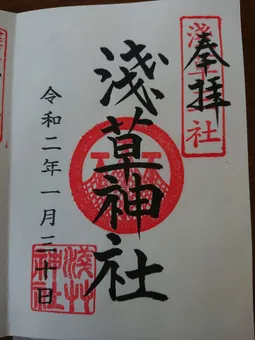 奉拝
浅草神社
令和二年一月三十日
浅草神社